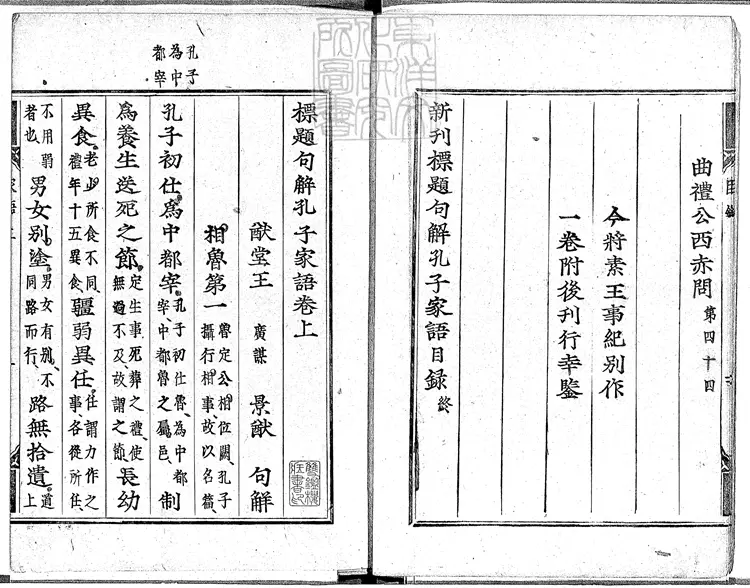 曲禮公西赤問 第四十四
今將素王事紀別作
一卷附後刊行幸鑒
新刊標題句解孔子家語目録 終
標題句解孔子家語卷上
猷堂王 廣謀 景猷 句解
相魯第一 魯定公相位闕、孔子攝行相事、故以名篇、
孔子初仕爲中都宰。孔子初仕魯、為中都宰、中都魯之屬邑、制
爲養生送死之節。定生事死葬之禮、使無過不及、故謂之節、長幼
異食。老少所食不同、禮年十五異食、彊弱異任。任謂力作之事、各從所任、
不用弱者也 男女別塗。男女有別、不同路而行、路無拾遺。道上
孔子
為中
都宰
目録
家語
東洋文化研究所圖書